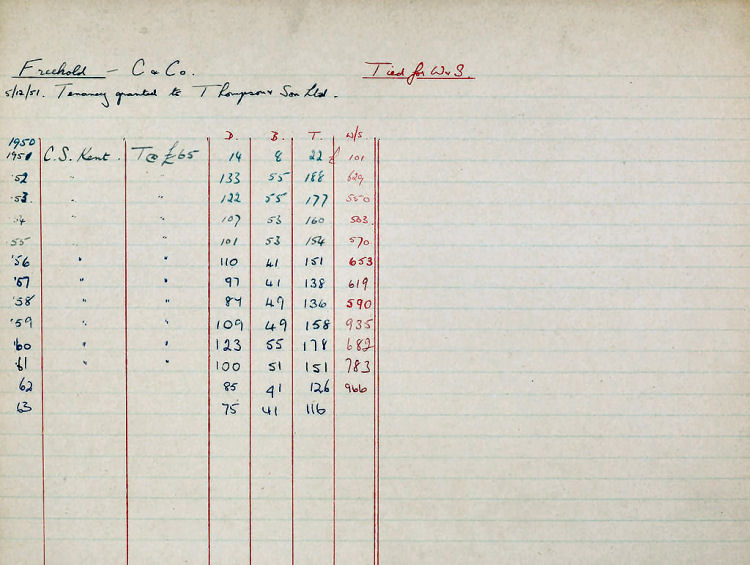 Freehold - C & Co. Tied for W & S.
5/12/51. Tenancy granted to Thompson & Son Ltd.
D. B. T. W/S
1950
1951 C.S. Kent. T @ £65 14 8 22 £ 101
'52 " " 133 55 188 629
'53 " " 122 55 177 550
54 " " 107 53 160 503
55 " " 101 53 154 570
'56 " " 110 41 151 653
'57 " " 97 41 138 619
'58 " " 87 49 136 590
'59 " " 109 49 158 935
'60 " " 123 55 178 682
'61 " " 100 51 151 783
62 85 41 126 966
63 75 41 116